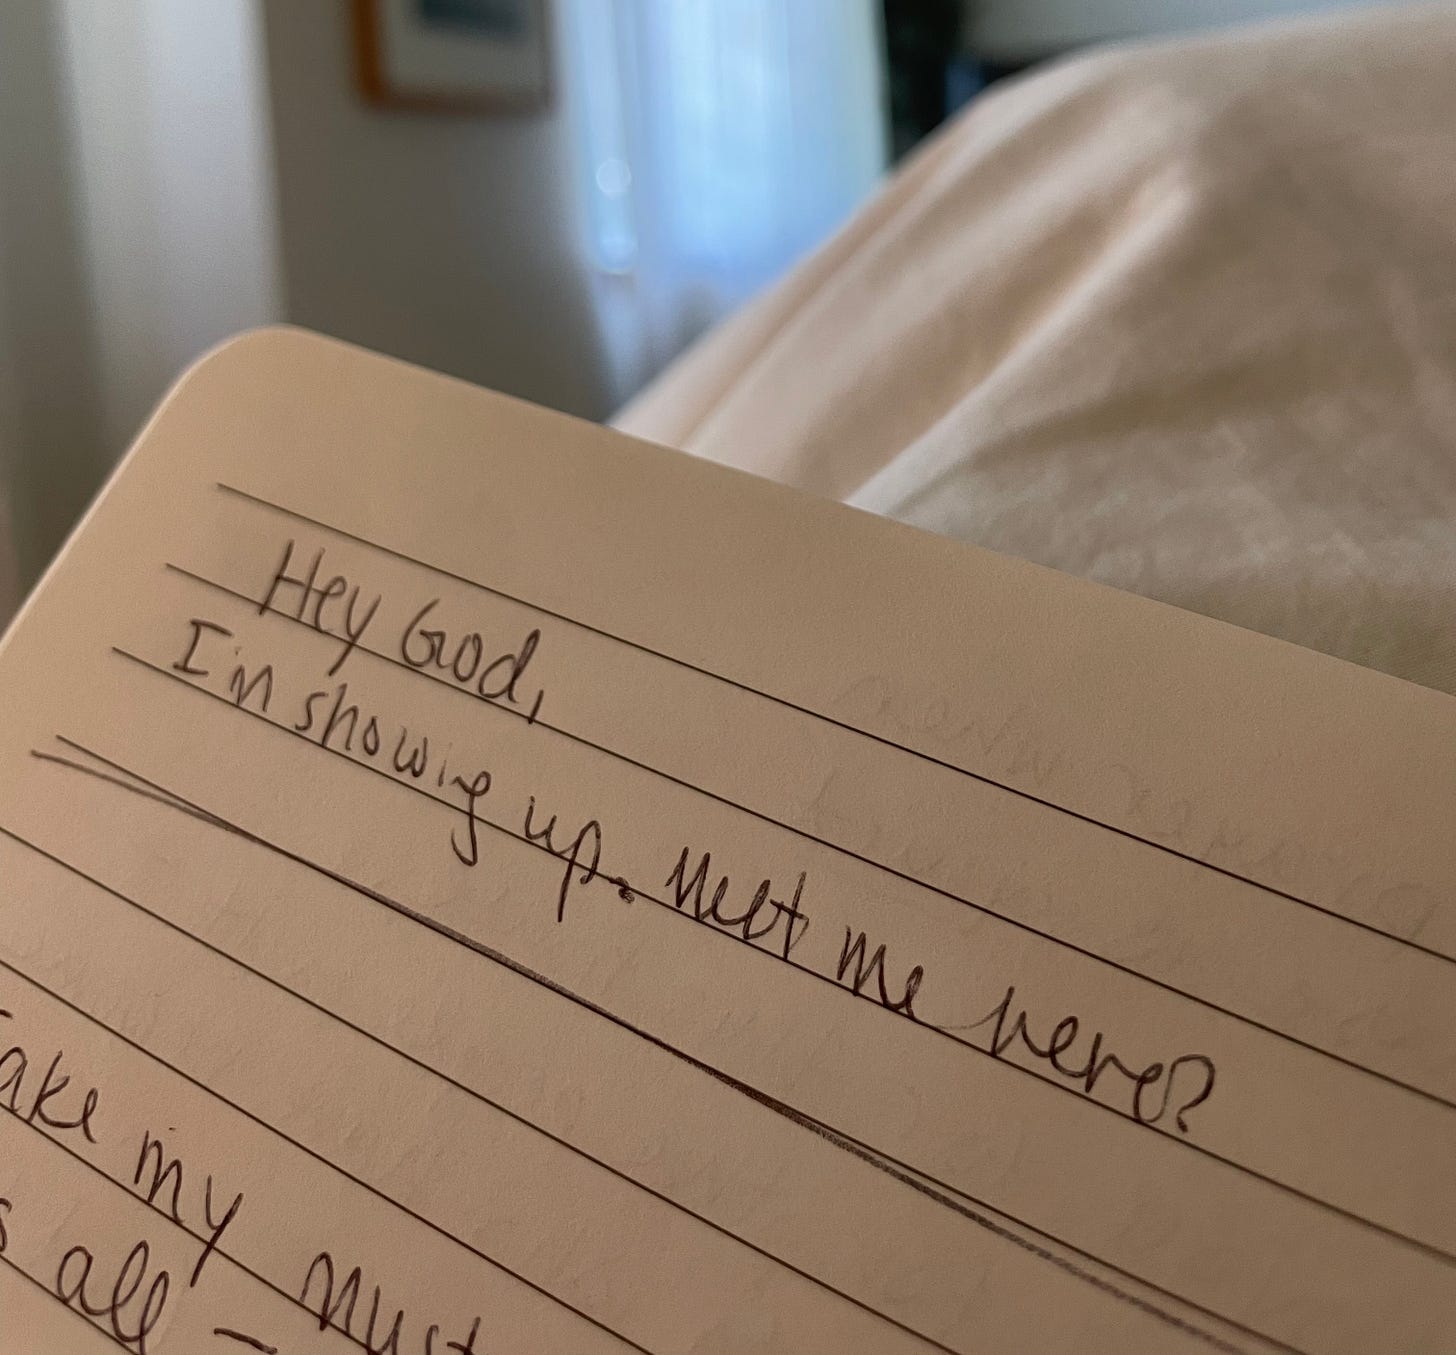 Hey God,
I'm showing up. Meet me here?
take my must
all –